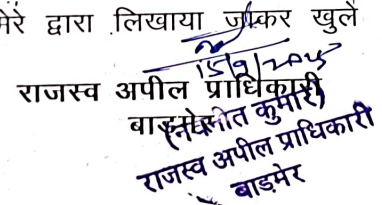 मेरे द्वारा लिखाया जाकर खुले
15/9/2025
राजस्व अपील प्राधिकारी
बाड़मेर
(नवनीत कुमार)
राजस्व अपील प्राधिकारी
बाड़मेर